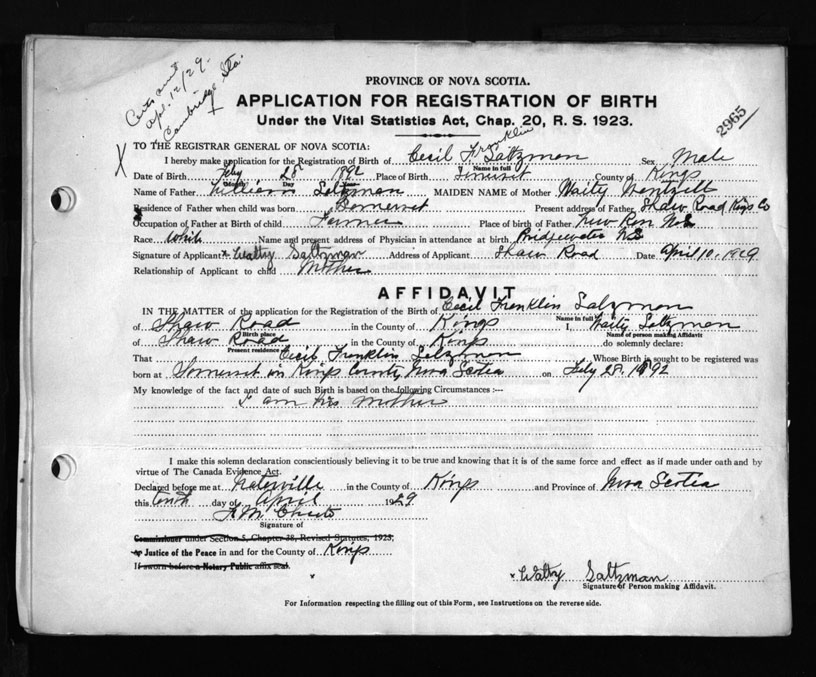 Certs and
Apl. 12/29.
Cambridge Sta.
2965
PROVINCE OF NOVA SCOTIA.
APPLICATION FOR REGISTRATION OF BIRTH
Under the Vital Statistics Act, Chap. 20, R. S. 1923.
TO THE REGISTRAR GENERAL OF NOVA SCOTIA:
I hereby make application for the Registration of Birth of Cecil Franklin Saltzman Sex Male
Name in full
Date of Birth July 28 1892 Place of Birth Somerset County of Kings
Month Day Year
Name of Father William Saltzman MAIDEN NAME of Mother Waity
Residence of Father when child was born Somerset Present address of Father Shaw Road Kings Co
Occupation of Father at Birth of child Farmer Place of birth of Father New Ross N.S.
Race White Name and present address of Physician in attendance at birth Bridgewater N.S.
Signature of Applicant x Waity Saltzman Address of Applicant Shaw Road Date April 10, 1929
Relationship of Applicant to child Mother
AFFIDAVIT
IN THE MATTER of the application for the Registration of the Birth of Cecil Franklin Salzman
Name in full
of Shaw Road in the County of Kings I, Waity Saltzman
Birth place Name of person making Affidavit
of Shaw Road in the County of Kings do solemnly declare:
Present residence
That Cecil Franklin Saltzman Whose Birth is sought to be registered was
born at Somerset in Kings County Nova Scotia on July 28, 1892
My knowledge of the fact and date of such Birth is based on the following Circumstances:—
I am his Mother
I make this solemn declaration conscientiously believing it to be true and knowing that it is of the same force and effect as if made under oath and by
virtue of The Canada Evidence Act.
Declared before me at Waterville in the County of Kings and Province of Nova Scotia
this tenth day of April 1929
Signature of
Commissioner under Section 5, Chapter 38, Revised Statutes, 1923,
Justice of the Peace in and for the County of Kings
If sworn before a Notary Public affix seal.
x Waity Saltzman
Signature of Person making Affidavit.
For Information respecting the filling out of this Form, see Instructions on the reverse side.